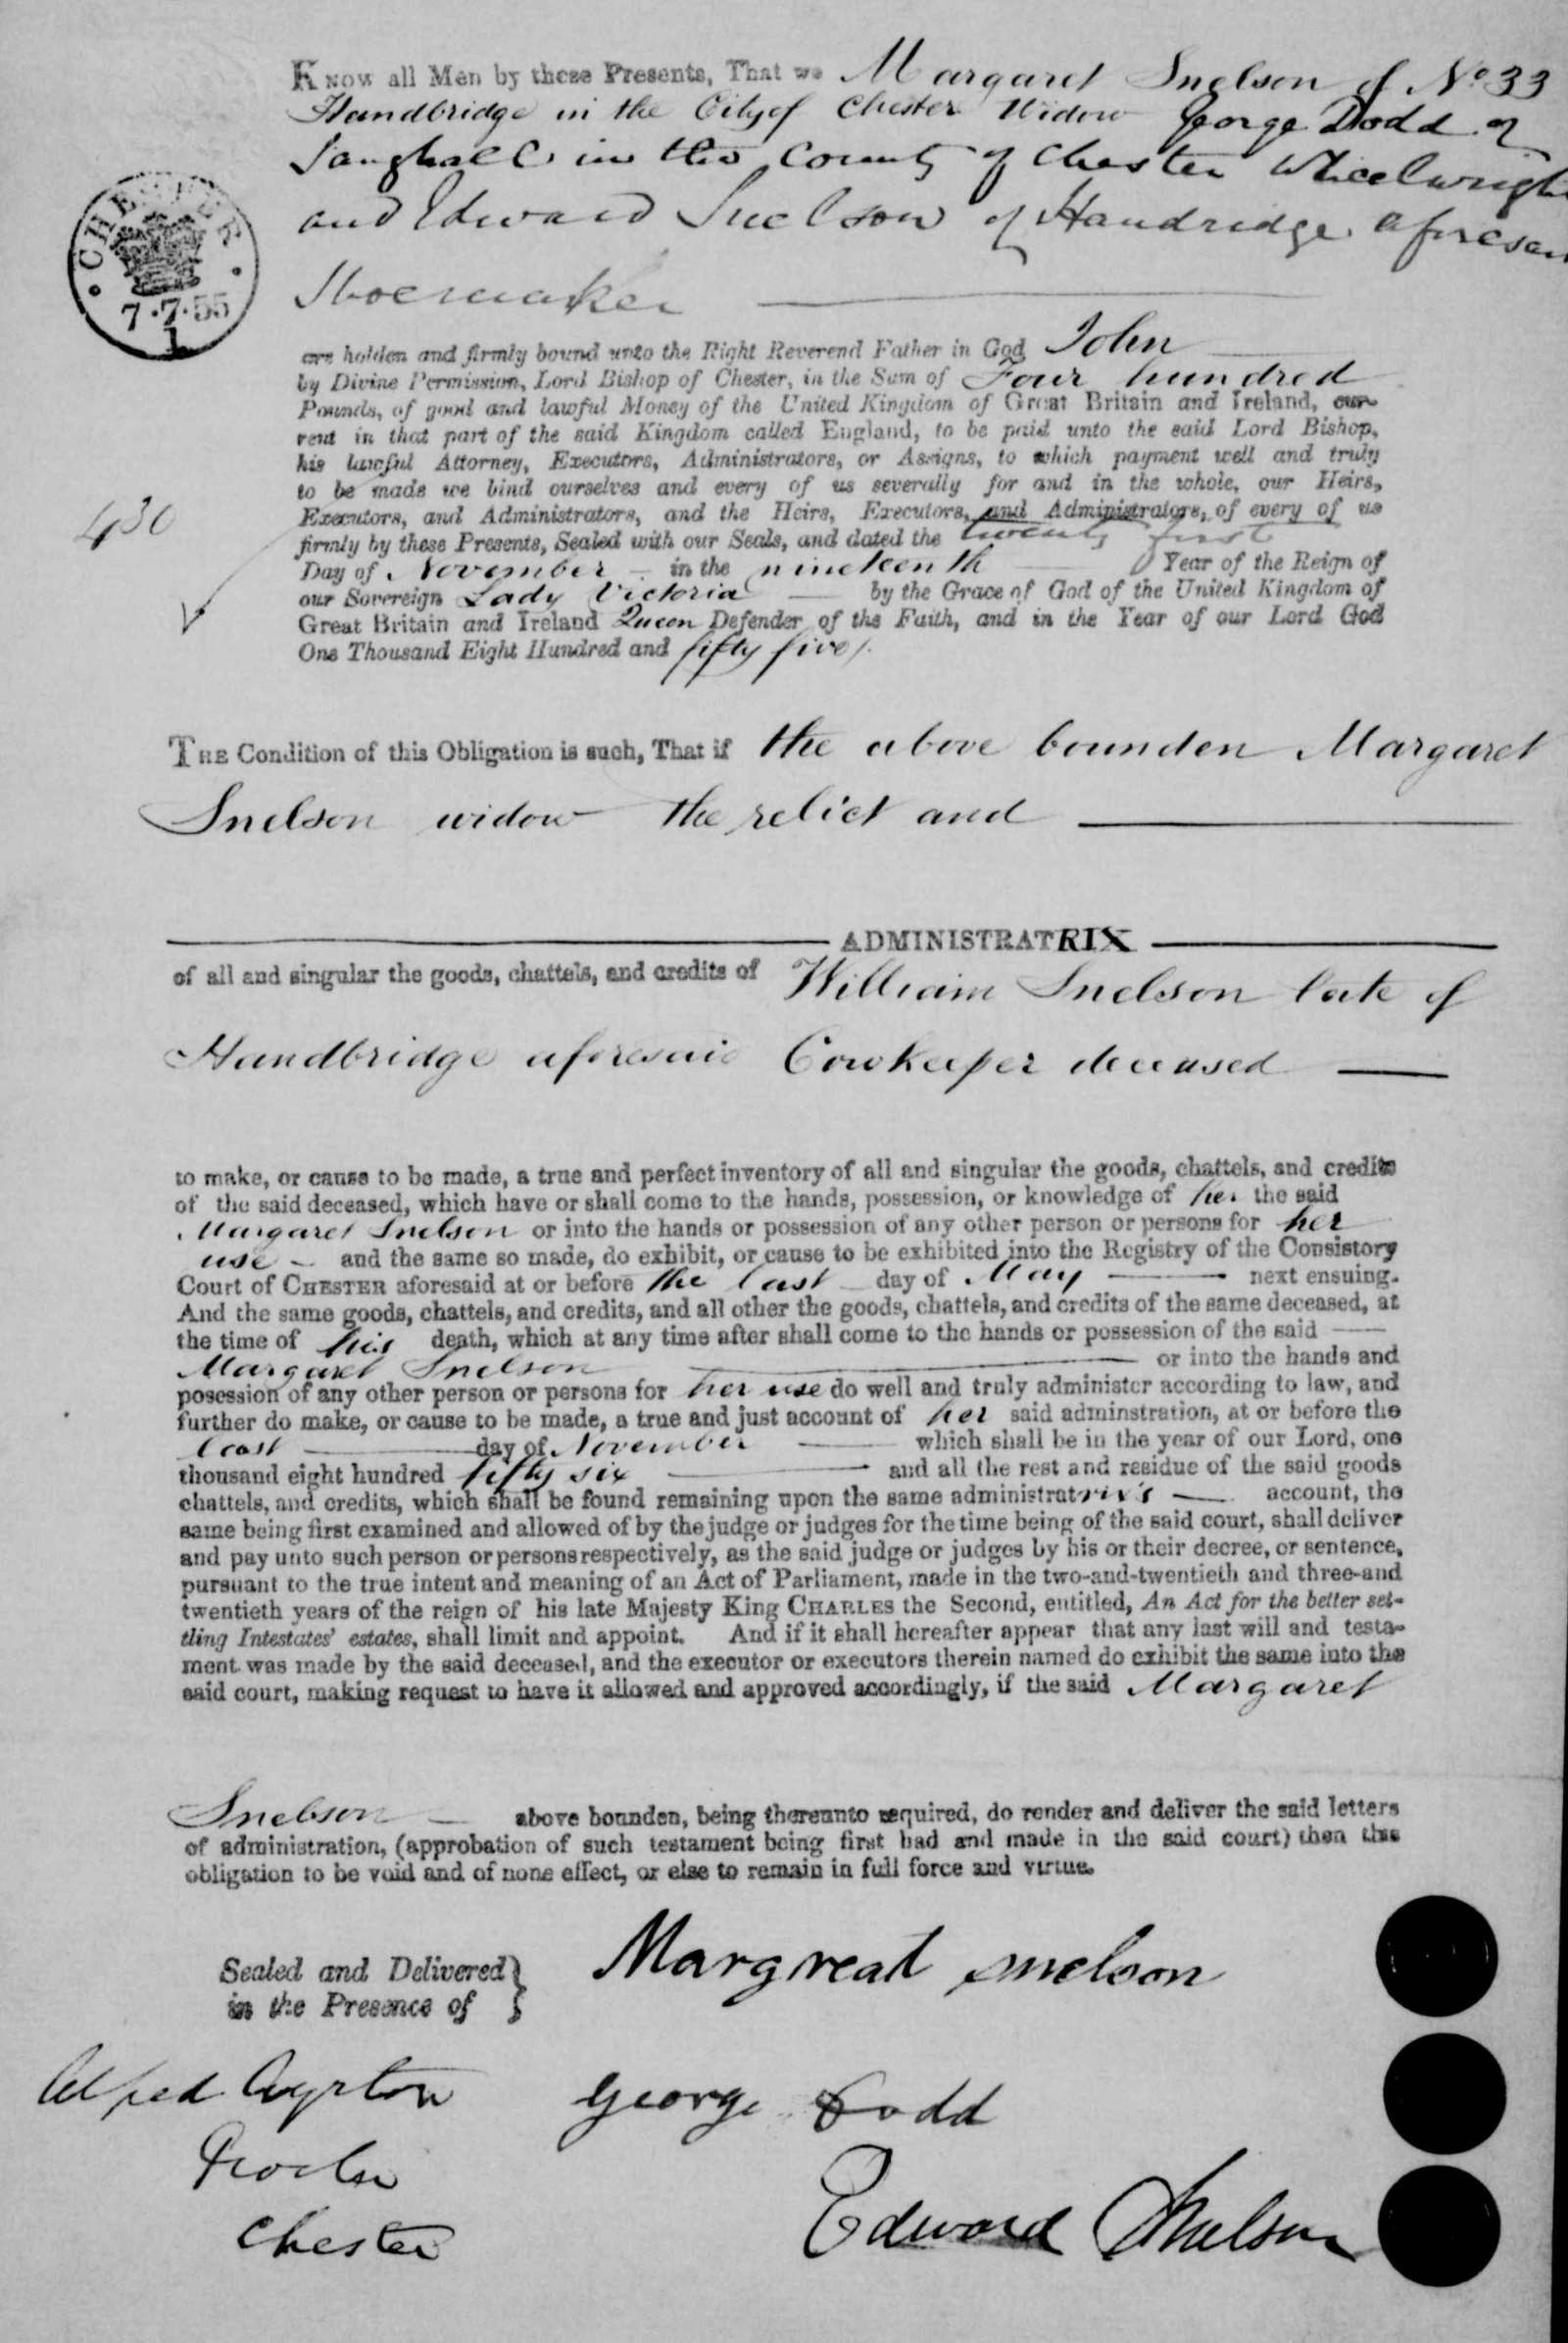 Know all Men by these Presents, That we Margaret Snelson of No. 33
Handbridge in the City of Chester Widow George Dodd of
Saughall in the County of Chester Wheelwright
and Edward Snelson of Handridge aforesai
Shoemaker
CHESTER
7·7·55
1
are holden and firmly bound unto the Right Reverend Father in God John
by Divine Permission, Lord Bishop of Chester, in the Sum of Four hundred
Pounds, of good and lawful Money of the United Kingdom of Great Britain and Ireland, cur-
rent in that part of the said Kingdom called England, to be paid unto the said Lord Bishop,
his lawful Attorney, Executors, Administrators, or Assigns, to which payment well and truly
to be made we bind ourselves and every of us severally for and in the whole, our Heirs,
Executors, and Administrators, and the Heirs, Executors, and Administrators, of every of us
430
firmly by these Presents, Sealed with our Seals, and dated the twenty first
Day of November in the nineteenth Year of the Reign of
our Sovereign Lady Victoria by the Grace of God of the United Kingdom of
Great Britain and Ireland Queen Defender of the Faith, and in the Year of our Lord God
One Thousand Eight Hundred and fifty five/.
THE Condition of this Obligation is such, That if the above bounden Margaret
Snelson widow the relict and
ADMINISTRATRIX
of all and singular the goods, chattels, and credits of William Snelson late of
Handbridge aforesaid Cowkeeper deceased
to make, or cause to be made, a true and perfect inventory of all and singular the goods, chattels, and credits
of the said deceased, which have or shall come to the hands, possession, or knowledge of her the said
Margaret Snelson or into the hands or possession of any other person or persons for her
use and the same so made, do exhibit, or cause to be exhibited into the Registry of the Consistory
Court of CHESTER aforesaid at or before the last day of May next ensuing.
And the same goods, chattels, and credits, and all other the goods, chattels, and credits of the same deceased, at
the time of his death, which at any time after shall come to the hands or possession of the said
Margaret Snelson or into the hands and
posession of any other person or persons for her use do well and truly administer according to law, and
further do make, or cause to be made, a true and just account of her said adminstration, at or before the
last day of November which shall be in the year of our Lord, one
thousand eight hundred fifty six and all the rest and residue of the said goods
chattels, and credits, which shall be found remaining upon the same administratrix's account, the
same being first examined and allowed of by the judge or judges for the time being of the said court, shall deliver
and pay unto such person or persons respectively, as the said judge or judges by his or their decree, or sentence,
pursuant to the true intent and meaning of an Act of Parliament, made in the two-and-twentieth and three-and
twentieth years of the reign of his late Majesty King CHARLES the Second, entitled, An Act for the better set-
tling Intestates' estates, shall limit and appoint. And if it shall hereafter appear that any last will and testa-
ment was made by the said deceased, and the executor or executors therein named do exhibit the same into the
said court, making request to have it allowed and approved accordingly, if the said Margaret
Snelson above bounden, being thereunto required, do render and deliver the said letters
of administration, (approbation of such testament being first had and made in the said court) then this
obligation to be void and of none effect, or else to remain in full force and virtue.
Sealed and Delivered
in the Presence of
Margreat Snelson
Alfred Ayrton
George Dodd
Proctor
Chester
Edward Snelson